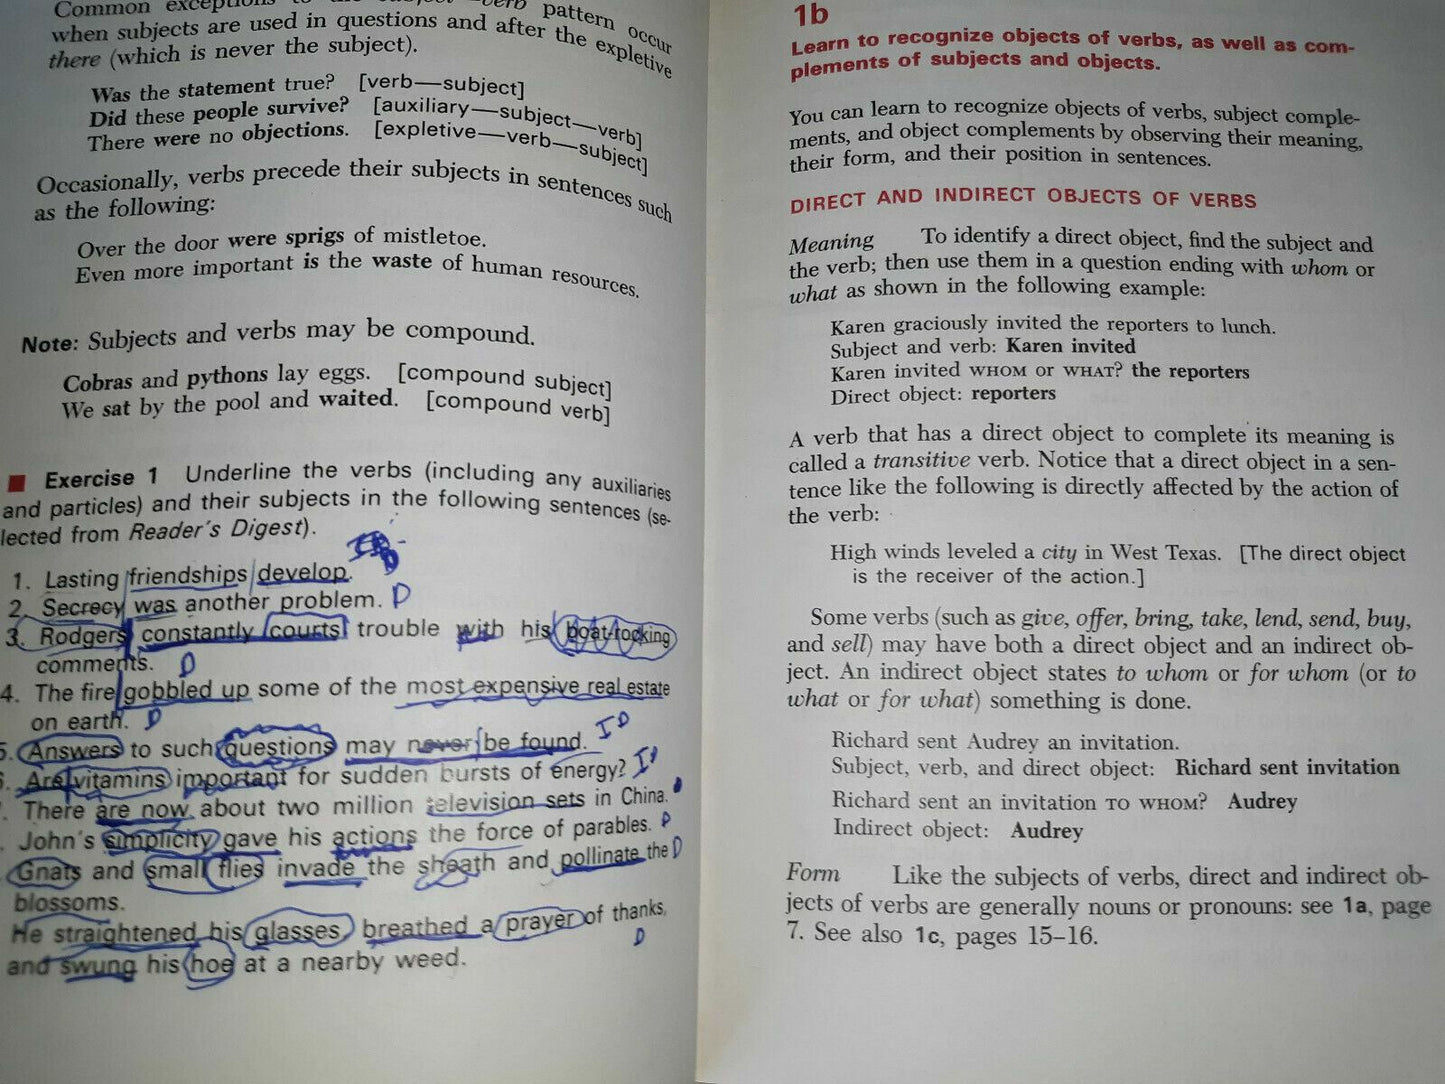 Common exceptions to the subject—verb pattern occur
when subjects are used in questions and after the expletive
there (which is never the subject).
Was the statement true? [verb—subject]
Did these people survive? [auxiliary—subject—verb]
There were no objections. [expletive—verb—subject]
Occasionally, verbs precede their subjects in sentences such
as the following:
Over the door were sprigs of mistletoe.
Even more important is the waste of human resources.
Note: Subjects and verbs may be compound.
Cobras and pythons lay eggs. [compound subject]
We sat by the pool and waited. [compound verb]
Exercise 1 Underline the verbs (including any auxiliaries
and particles) and their subjects in the following sentences (se-
lected from Reader's Digest).
1. Lasting friendships develop.
2. Secrecy was another problem. D
3. Rodgers constantly courts trouble with his boat-rocking
comments. D
4. The fire gobbled up some of the most expensive real estate
on earth. D
5. Answers to such questions may never be found. ID
6. Are vitamins important for sudden bursts of energy? ID
. There are now about two million television sets in China.
. John's simplicity gave his actions the force of parables. D
Gnats and small flies invade the sheath and pollinate the D
blossoms.
He straightened his glasses, breathed a prayer of thanks,
D
and swung his hoe at a nearby weed.
1b
Learn to recognize objects of verbs, as well as com-
plements of subjects and objects.
You can learn to recognize objects of verbs, subject comple-
ments, and object complements by observing their meaning,
their form, and their position in sentences.
DIRECT AND INDIRECT OBJECTS OF VERBS
Meaning To identify a direct object, find the subject and
the verb; then use them in a question ending with whom or
what as shown in the following example:
Karen graciously invited the reporters to lunch.
Subject and verb: Karen invited
Karen invited WHOM OR WHAT? the reporters
Direct object: reporters
A verb that has a direct object to complete its meaning is
called a transitive verb. Notice that a direct object in a sen-
tence like the following is directly affected by the action of
the verb:
High winds leveled a city in West Texas. [The direct object
is the receiver of the action.]
Some verbs (such as give, offer, bring, take, lend, send, buy,
and sell) may have both a direct object and an indirect ob-
ject. An indirect object states to whom or for whom (or to
what or for what) something is done.
Richard sent Audrey an invitation.
Subject, verb, and direct object: Richard sent invitation
Richard sent an invitation TO WHOM? Audrey
Indirect object: Audrey
Form Like the subjects of verbs, direct and indirect ob-
jects of verbs are generally nouns or pronouns: see 1a, page
7. See also 1c, pages 15–16.